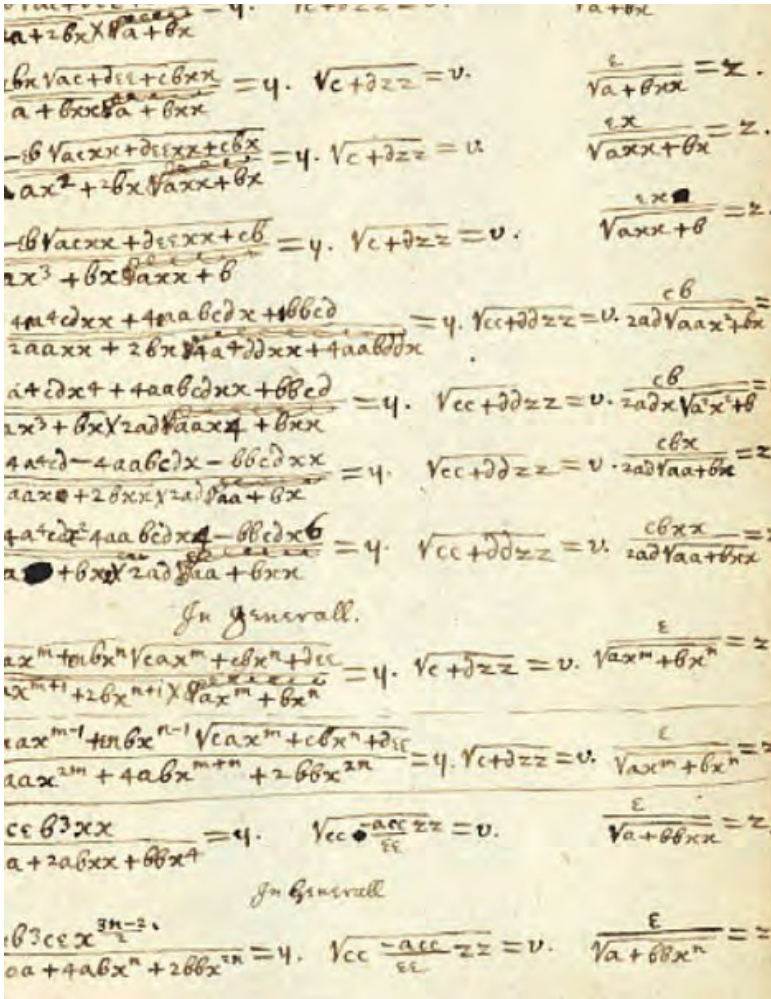 a+2bx)(√a+bx √a+bx
bx√ac+dεε+cbxx / a+bxx √a+bxx = y. √c+dzz = v. ε / √a+bxx = z.
-εb√acxx+dεεxx+cbx / ax² + 2bx √axx+bx = y. √c+dzz = v. εx / √axx+bx = z.
-εb√acxx+dεεxx+cb / ax³ + bx √axx+b = y. √c+dzz = v. εx / √axx+b = z.
4a⁴cdxx + 4aabcdx + bbcd / 2aaxx + 2bx)(√4a⁴ddxx+4aabddx = y. √cc+ddzz = v. cb / 2ad√aax²+bx =
a⁴cdx⁴ + 4aabcdxx + bbcd / x³ + bx)(2ad√aax4 + bxx = y. √cc+ddzz = v. cb / 2adx√a²x²+b =
4a⁴cd - 4aabcdx - bbcdxx / aax + 2bxx)(2ad√aa+bx = y. √cc+ddzz = v. cbx / 2ad√aa+bx = z
4a⁴cdx² 4aabcdx4 - bbcdx6 / a + bx)(2ad√aa+bxx = y. √cc+ddzz = v. cbxx / 2ad√aa+bxx =
In Generall.
ax^m + nbx^n √cax^m + cbx^n + dεε / x^{m+1} + 2bx^{n+1})(√ax^m + bx^n = y. √c+dzz = v. ε / √ax^m + bx^n = z
ax^{m-1} + nbx^{n-1} √cax^m + cbx^n + dεε / aax^{2m} + 4abx^{m+n} + 2bbx^{2n} = y. √c+dzz = v. ε / √ax^m + bx^n = z
cεb³xx / a + 2abxx + bbx⁴ = y. √cc -acc/εε zz = v. ε / √a+bbxx = z
In Generall
b³cεx^{3n-2/2}. / aa + 4abx^n + 2bbx^{2n} = y. √cc -acc/εε zz = v. ε / √a+bbx^n = z